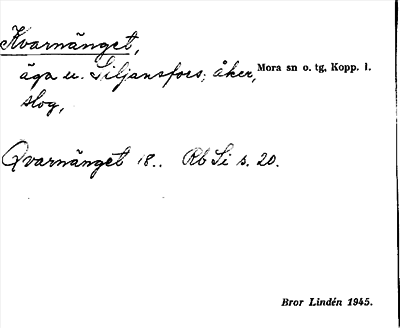 Kvarnänget,
äga u. Siljansfors; åker, Mora sn o. tg, Kopp. l.
slog,
Qvarnänget 18.. Rb Si s. 20.
Bror Lindén 1945.